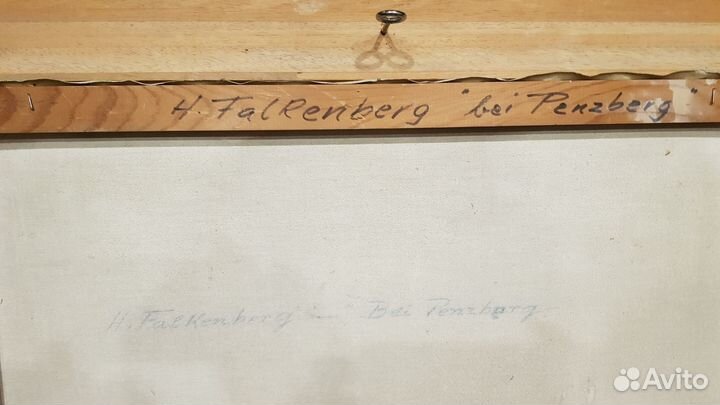 H. Falkenberg "bei Penzberg"
H. Falkenberg " Bei Penzberg
Avito